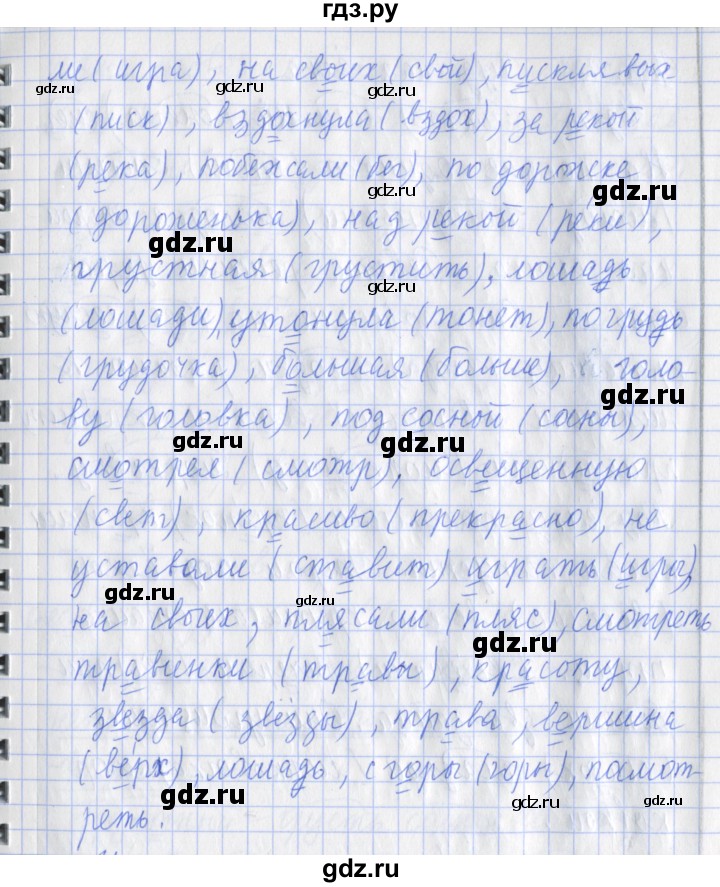 гдз.ру
ми (игра), на своих (свой), пискля вых
(писк), вздохнула (вздох), за рекой
(река), побежали (бег), по дорожке
(дороженька), над рекой (реки),
грустная (грустить), лошадь
(лошади), утонула (тонет), по грудь
(грудочка), большая (больше), голо-
ву (головка), под сосной (сосны),
смотрел (смотр), освещенную
(свет), красиво (прекрасно), не
уставали (ставит) играть (игры),
на своих, плясали (пляс), смотреть
травинки (травы), красоту,
звезда (звёзды), трава, вершина
(верх), лошадь, с горы (горы), посмот-
реть.
gdz.ru